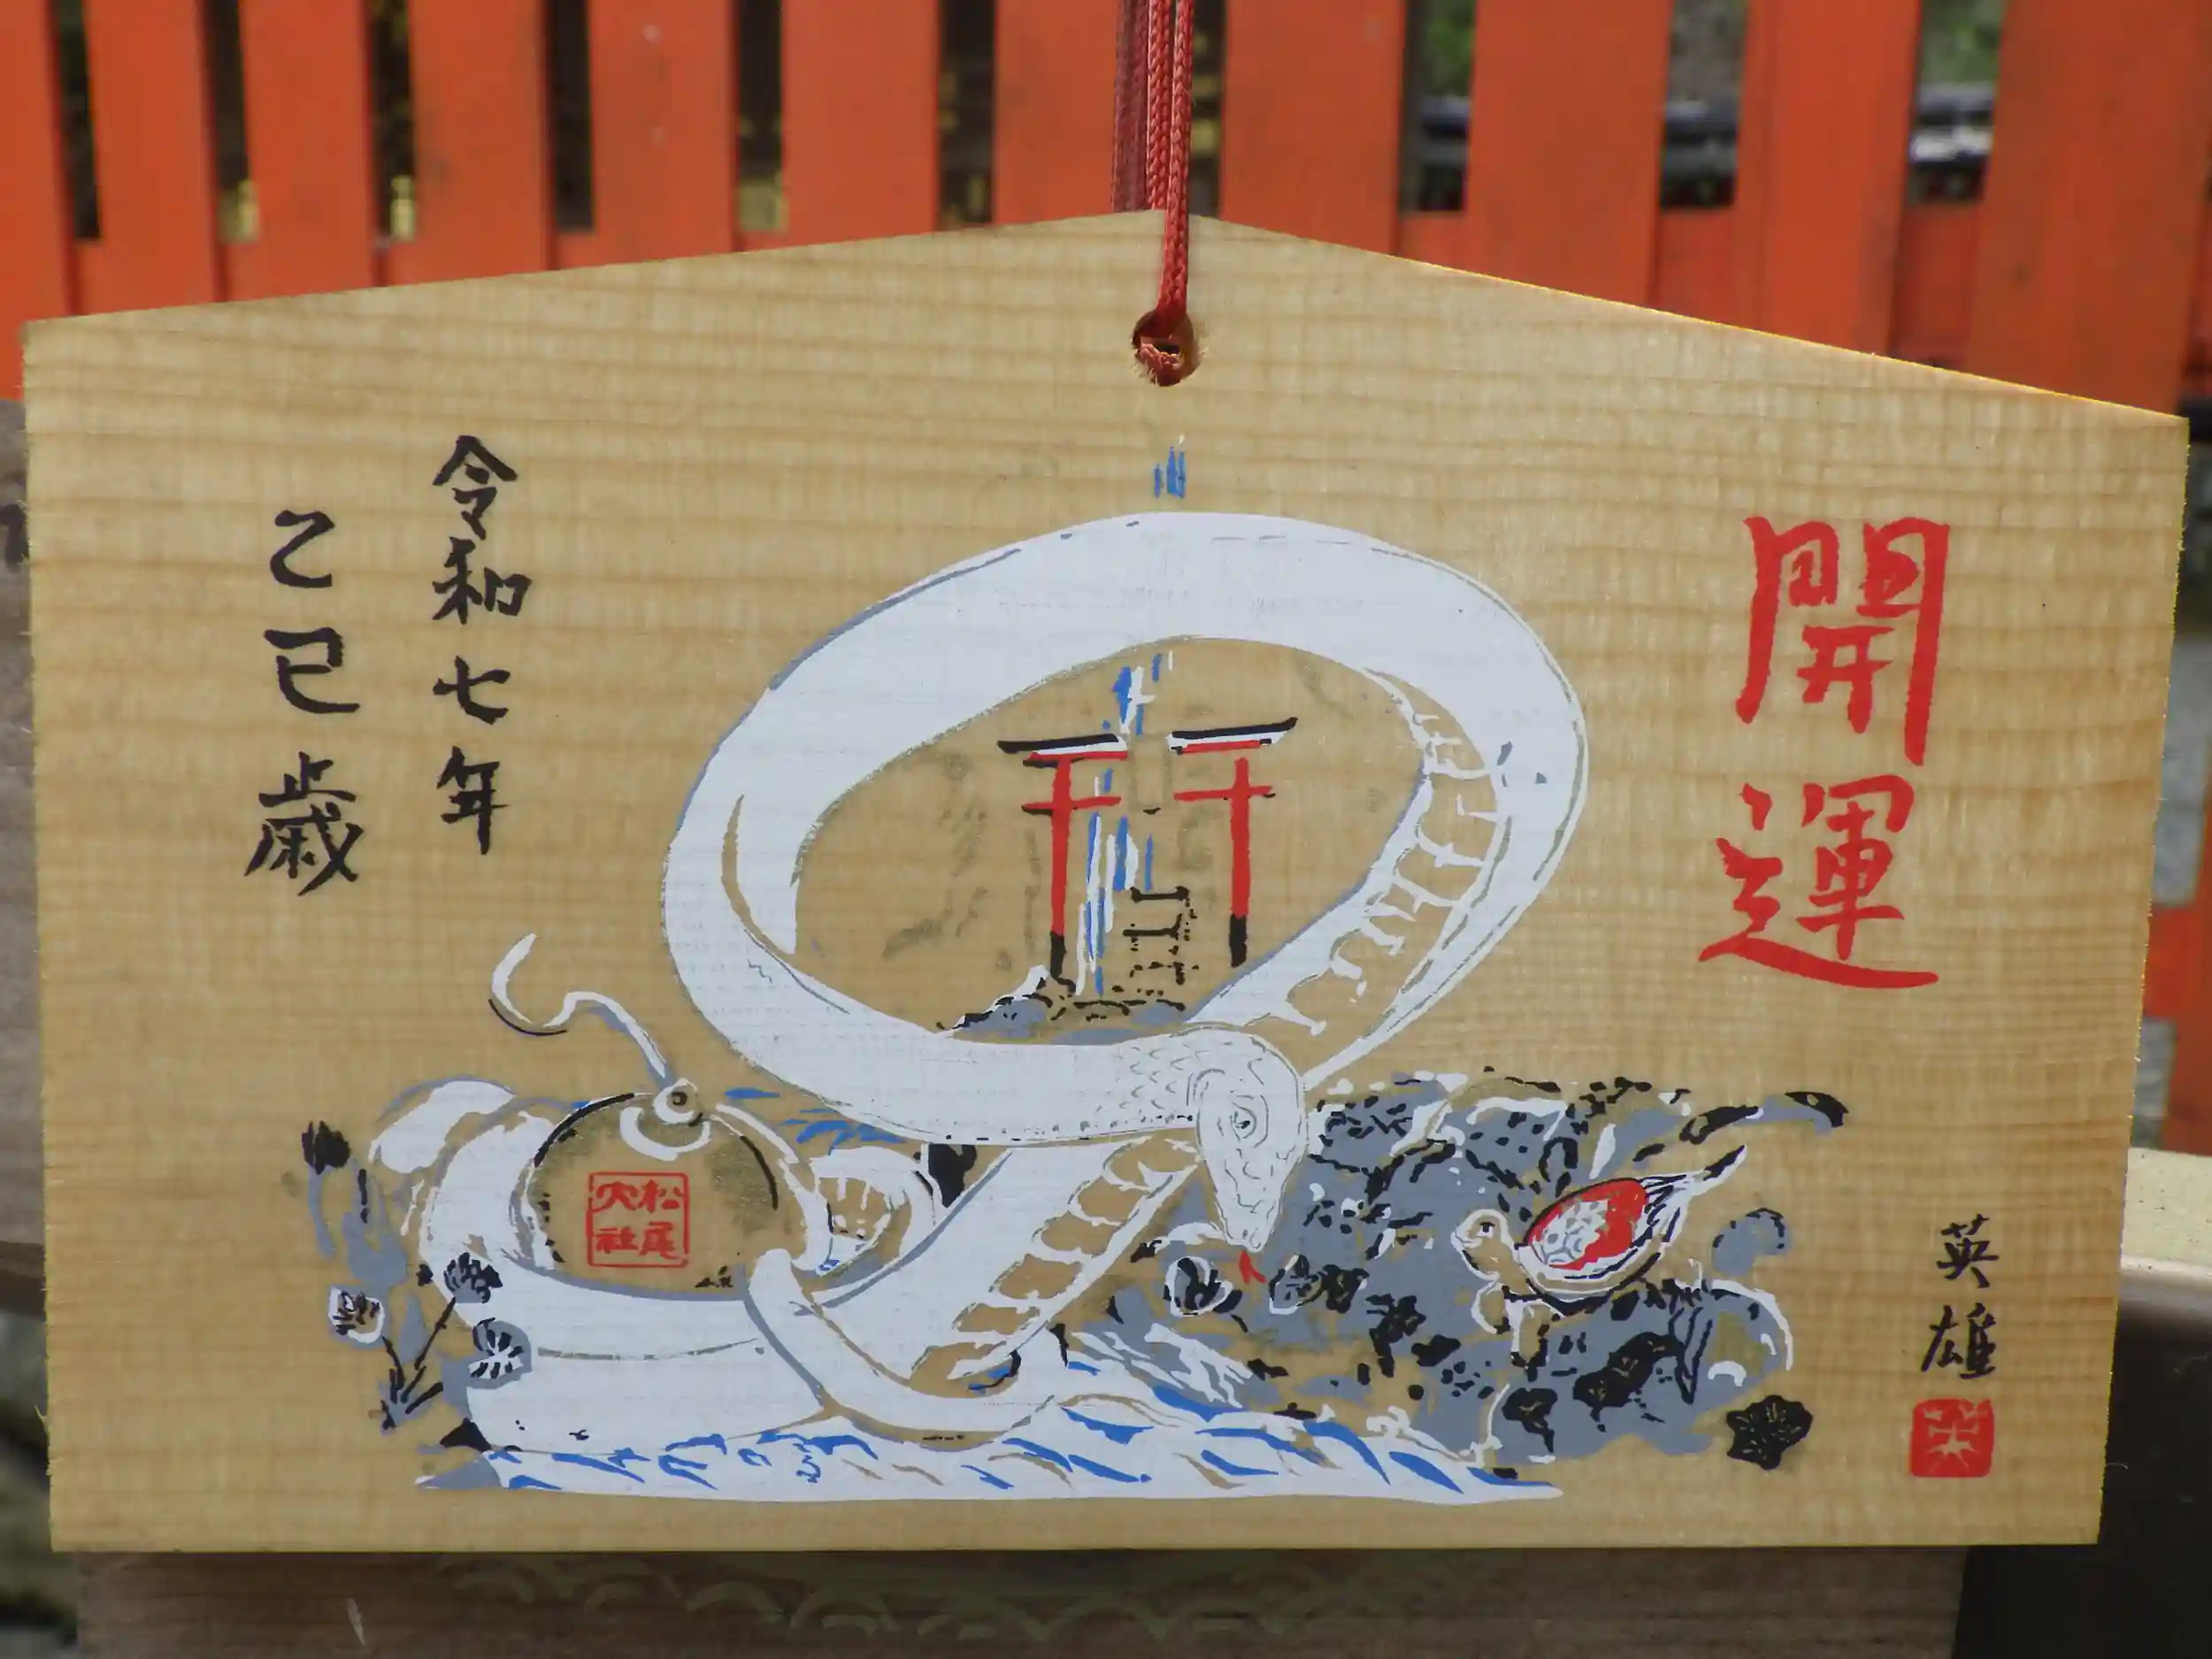 開運
令和七年
乙巳歳
松尾
大社
英雄